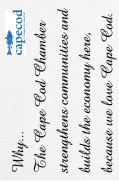 capecod
Why...
The Cape Cod Chamber
strengthens communities and
builds the economy here,
because we love Cape Cod.